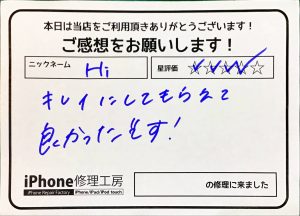 本日は当店をご利用頂きありがとうございます！
ご感想をお願いします！
ニックネーム Hi 星評価 ☆☆☆☆☆
キレイにしてもらえて
良かったです！
iPhone修理工房 の修理に来ました
iPhone Repair Factory iPhone/iPad/iPod touch